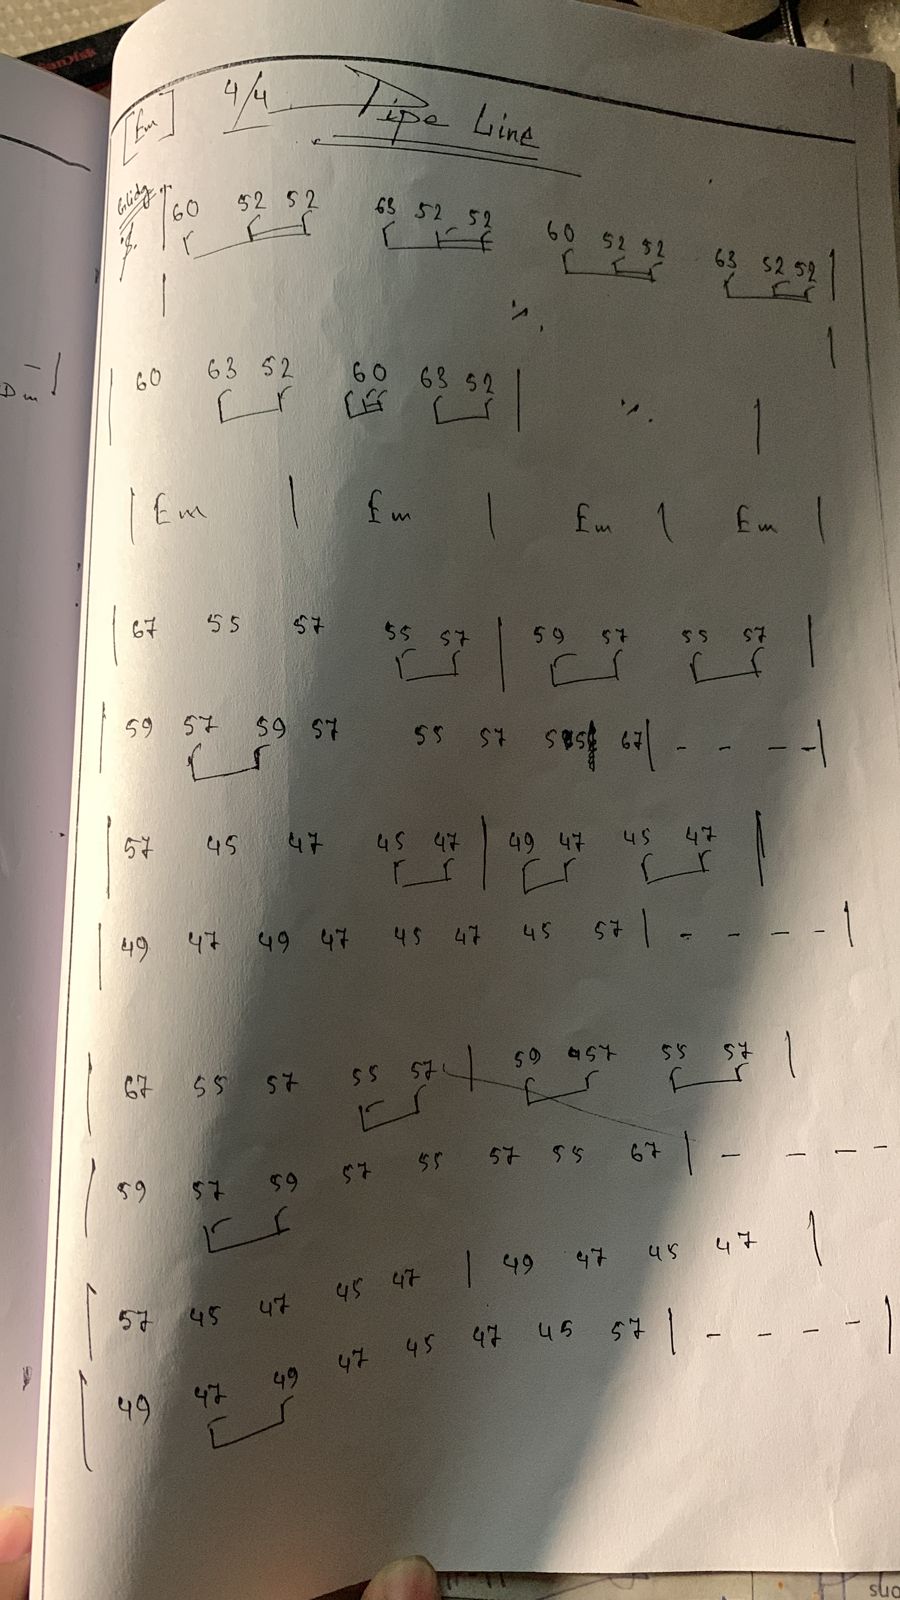 SanDisk
[Em] 4/4 Pipe Line
| 60 52 52 63 52 52 60 52 52 63 52 52 |
| ٪. |
Dm
| 60 63 52 60 63 52 | ٪. |
| Em | Em | Em | Em |
| 67 55 57 55 57 | 59 57 55 57 |
| 59 57 59 57 55 57 67 | - - - - |
| 57 45 47 45 47 | 49 47 45 47 |
| 49 47 49 47 45 47 45 57 | - - - - |
| 67 55 57 55 57 | 59 57 55 57 |
| 59 57 59 57 55 57 55 67 | - - - -
| 57 45 47 45 47 | 49 47 45 47 |
| 49 47 49 47 45 47 45 57 | - - - - |